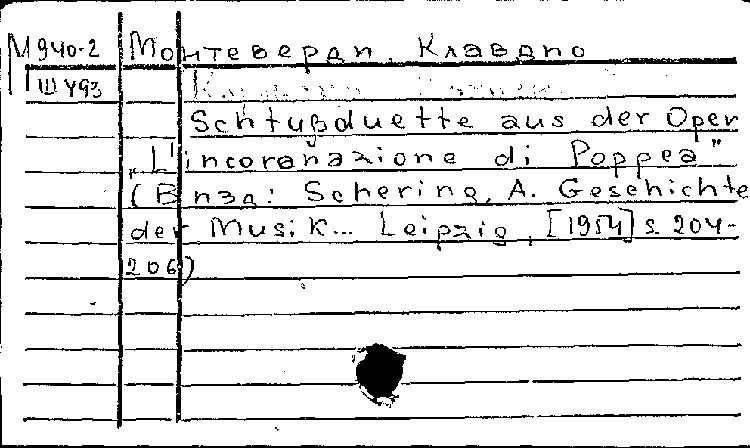 М940-2 Монтеверди, Клавдио
Ш У93
Schlußduette aus der Oper
„L'incoronazione di Poppea"
(В изд: Schering, A. Geschichte
der Musik... Leipzig, [1954] s. 204-
206)